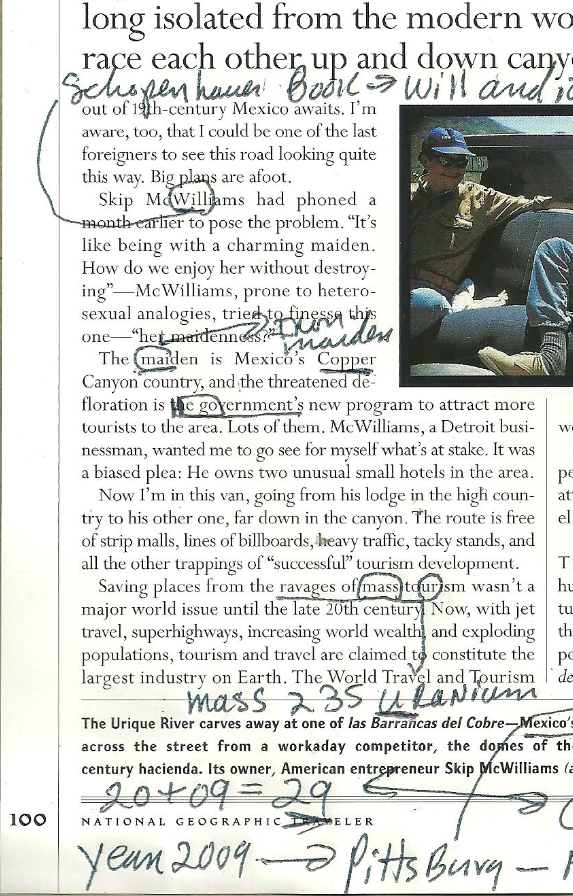 long isolated from the modern wo
race each other up and down cany
Schopenhauer Book → Will and i
out of 19th-century Mexico awaits. I'm
aware, too, that I could be one of the last
foreigners to see this road looking quite
this way. Big plans are afoot.
Skip McWilliams had phoned a
month earlier to pose the problem. “It's
like being with a charming maiden.
How do we enjoy her without destroy-
ing”—McWilliams, prone to hetero-
sexual analogies, tried to finesse this
one—“her maidenness?”
Iron
maiden
The maiden is Mexico's Copper
Canyon country, and the threatened de-
floration is the government's new program to attract more
tourists to the area. Lots of them. McWilliams, a Detroit busi-
nessman, wanted me to go see for myself what's at stake. It was
a biased plea: He owns two unusual small hotels in the area.
Now I'm in this van, going from his lodge in the high coun-
try to his other one, far down in the canyon. The route is free
of strip malls, lines of billboards, heavy traffic, tacky stands, and
all the other trappings of “successful” tourism development.
Saving places from the ravages of mass tourism wasn't a
major world issue until the late 20th century. Now, with jet
travel, superhighways, increasing world wealth, and exploding
populations, tourism and travel are claimed to constitute the
largest industry on Earth. The World Travel and Tourism
mass 235 uranium
The Urique River carves away at one of las Barrancas del Cobre—Mexico's
across the street from a workaday competitor, the domes of th
century hacienda. Its owner, American entrepreneur Skip McWilliams (a
20+09=29
100 NATIONAL GEOGRAPHIC TRAVELER
year 2009 → Pittsburg –